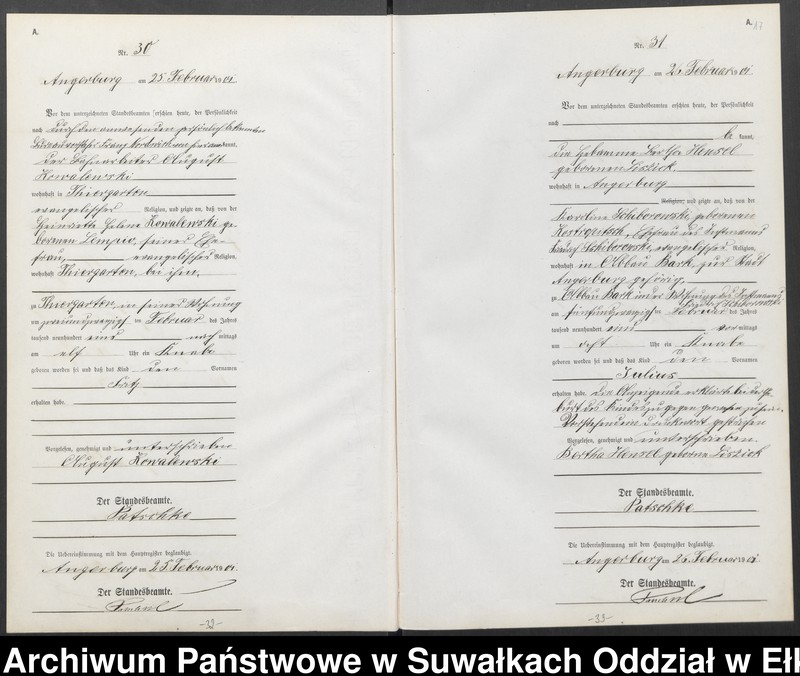 A.
Nr. 30
Angerburg am 25 Februar 1901
Vor dem unterzeichneten Standesbeamten erschien heute, der Persönlichkeit
nach durch den anwesenden persönlich bekannten
kannt,
der Bahnarbeiter August
Kowalewski
wohnhaft in Thiergarten
evangelischer Religion, und zeigte an, daß von der
Henriette Helene Kowalewski ge-
borenen Lempio, seiner Ehe-
frau, evangelischer Religion,
wohnhaft Thiergarten, bei ihm,
zu Thiergarten in seiner Wohnung
am zweiundzwanzigsten Februar des Jahres
tausend neunhundert eins nach mittags
um elf Uhr ein Knabe
geboren worden sei und daß das Kind den Vornamen
Fritz
erhalten habe.
Vorgelesen, genehmigt und unterschrieben
August Kowalewski
Der Standesbeamte.
Patschke
Die Uebereinstimmung mit dem Hauptregister beglaubigt.
Angerburg am 25. Februar 1901.
Der Standesbeamte.
-32-
A. 17
Nr. 31
Angerburg am 26. Februar 1901
Vor dem unterzeichneten Standesbeamten erschien heute, der Persönlichkeit
nach
be kannt,
die Hebamme Bertha Hensel
geborenen Liszick
wohnhaft in Angerburg
Religion, und zeigte an, daß von der
Karoline Schiborowski geborenen
Ehefrau des Instmanns
Schiborowski, evangelischer Religion,
wohnhaft in Abbau Bark zur Stadt
Angerburg gehörig,
zu Abbau Bark in der Wohnung des Instmanns
Schiborowski
am fünfundzwanzigsten Februar des Jahres
tausend neunhundert eins vor mittags
um acht Uhr ein Knabe
geboren worden sei und daß das Kind den Vornamen
Julius
erhalten habe. Die Anzeigende erklärte bei der Ge-
burt des Kindes zugegen gewesen zu sein.
Vorstehendem Druckwort gestrichen
Vorgelesen, genehmigt und unterschrieben
Bertha Hensel geborne Liszick
Der Standesbeamte.
Patschke
Die Uebereinstimmung mit dem Hauptregister beglaubigt.
Angerburg am 26. Februar 1901.
Der Standesbeamte.
-33-
Archiwum Państwowe w Suwałkach Oddział w Ełk